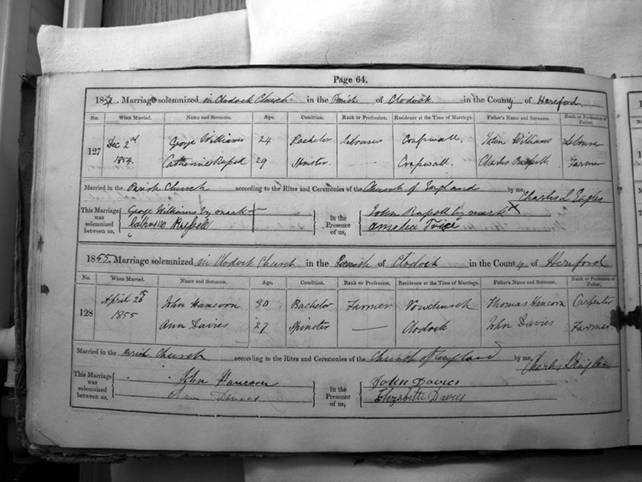 Page 64.
1854. Marriage solemnized in Clodock Church in the Parish of Clodock in the County of Hereford
No. When Married. Name and Surname. Age. Condition. Rank or Profession. Residence at the Time of Marriage. Father's Name and Surname. Rank or Profession of Father.
127 Dec 2nd 1854. George Williams 24 Bachelor Labourer John Williams Labourer
Catherine 29 Spinster — Charles Farmer
Married in the Parish Church according to the Rites and Ceremonies of the Church of England by me, Charles L
This Marriage was solemnized between us, George Williams by mark
In the Presence of us, John by mark X
Amelia Price
1855. Marriage solemnized in Clodock Church in the Parish of Clodock in the County of Hereford
No. When Married. Name and Surname. Age. Condition. Rank or Profession. Residence at the Time of Marriage. Father's Name and Surname. Rank or Profession of Father.
128 April 1855 John 30 Bachelor Farmer Vowchurch Thomas Carpenter
Ann Davies 27 Spinster — Clodock John Davies Farmer
Married in the Parish Church according to the Rites and Ceremonies of the Church of England by me, Charles
This Marriage was solemnized between us, John
In the Presence of us, John Davies
Elizabeth Davies